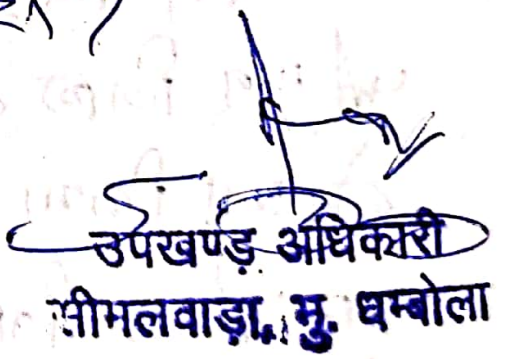 उपखण्ड़ अधिकारी
सीमलवाड़ा, मु. धम्बोला